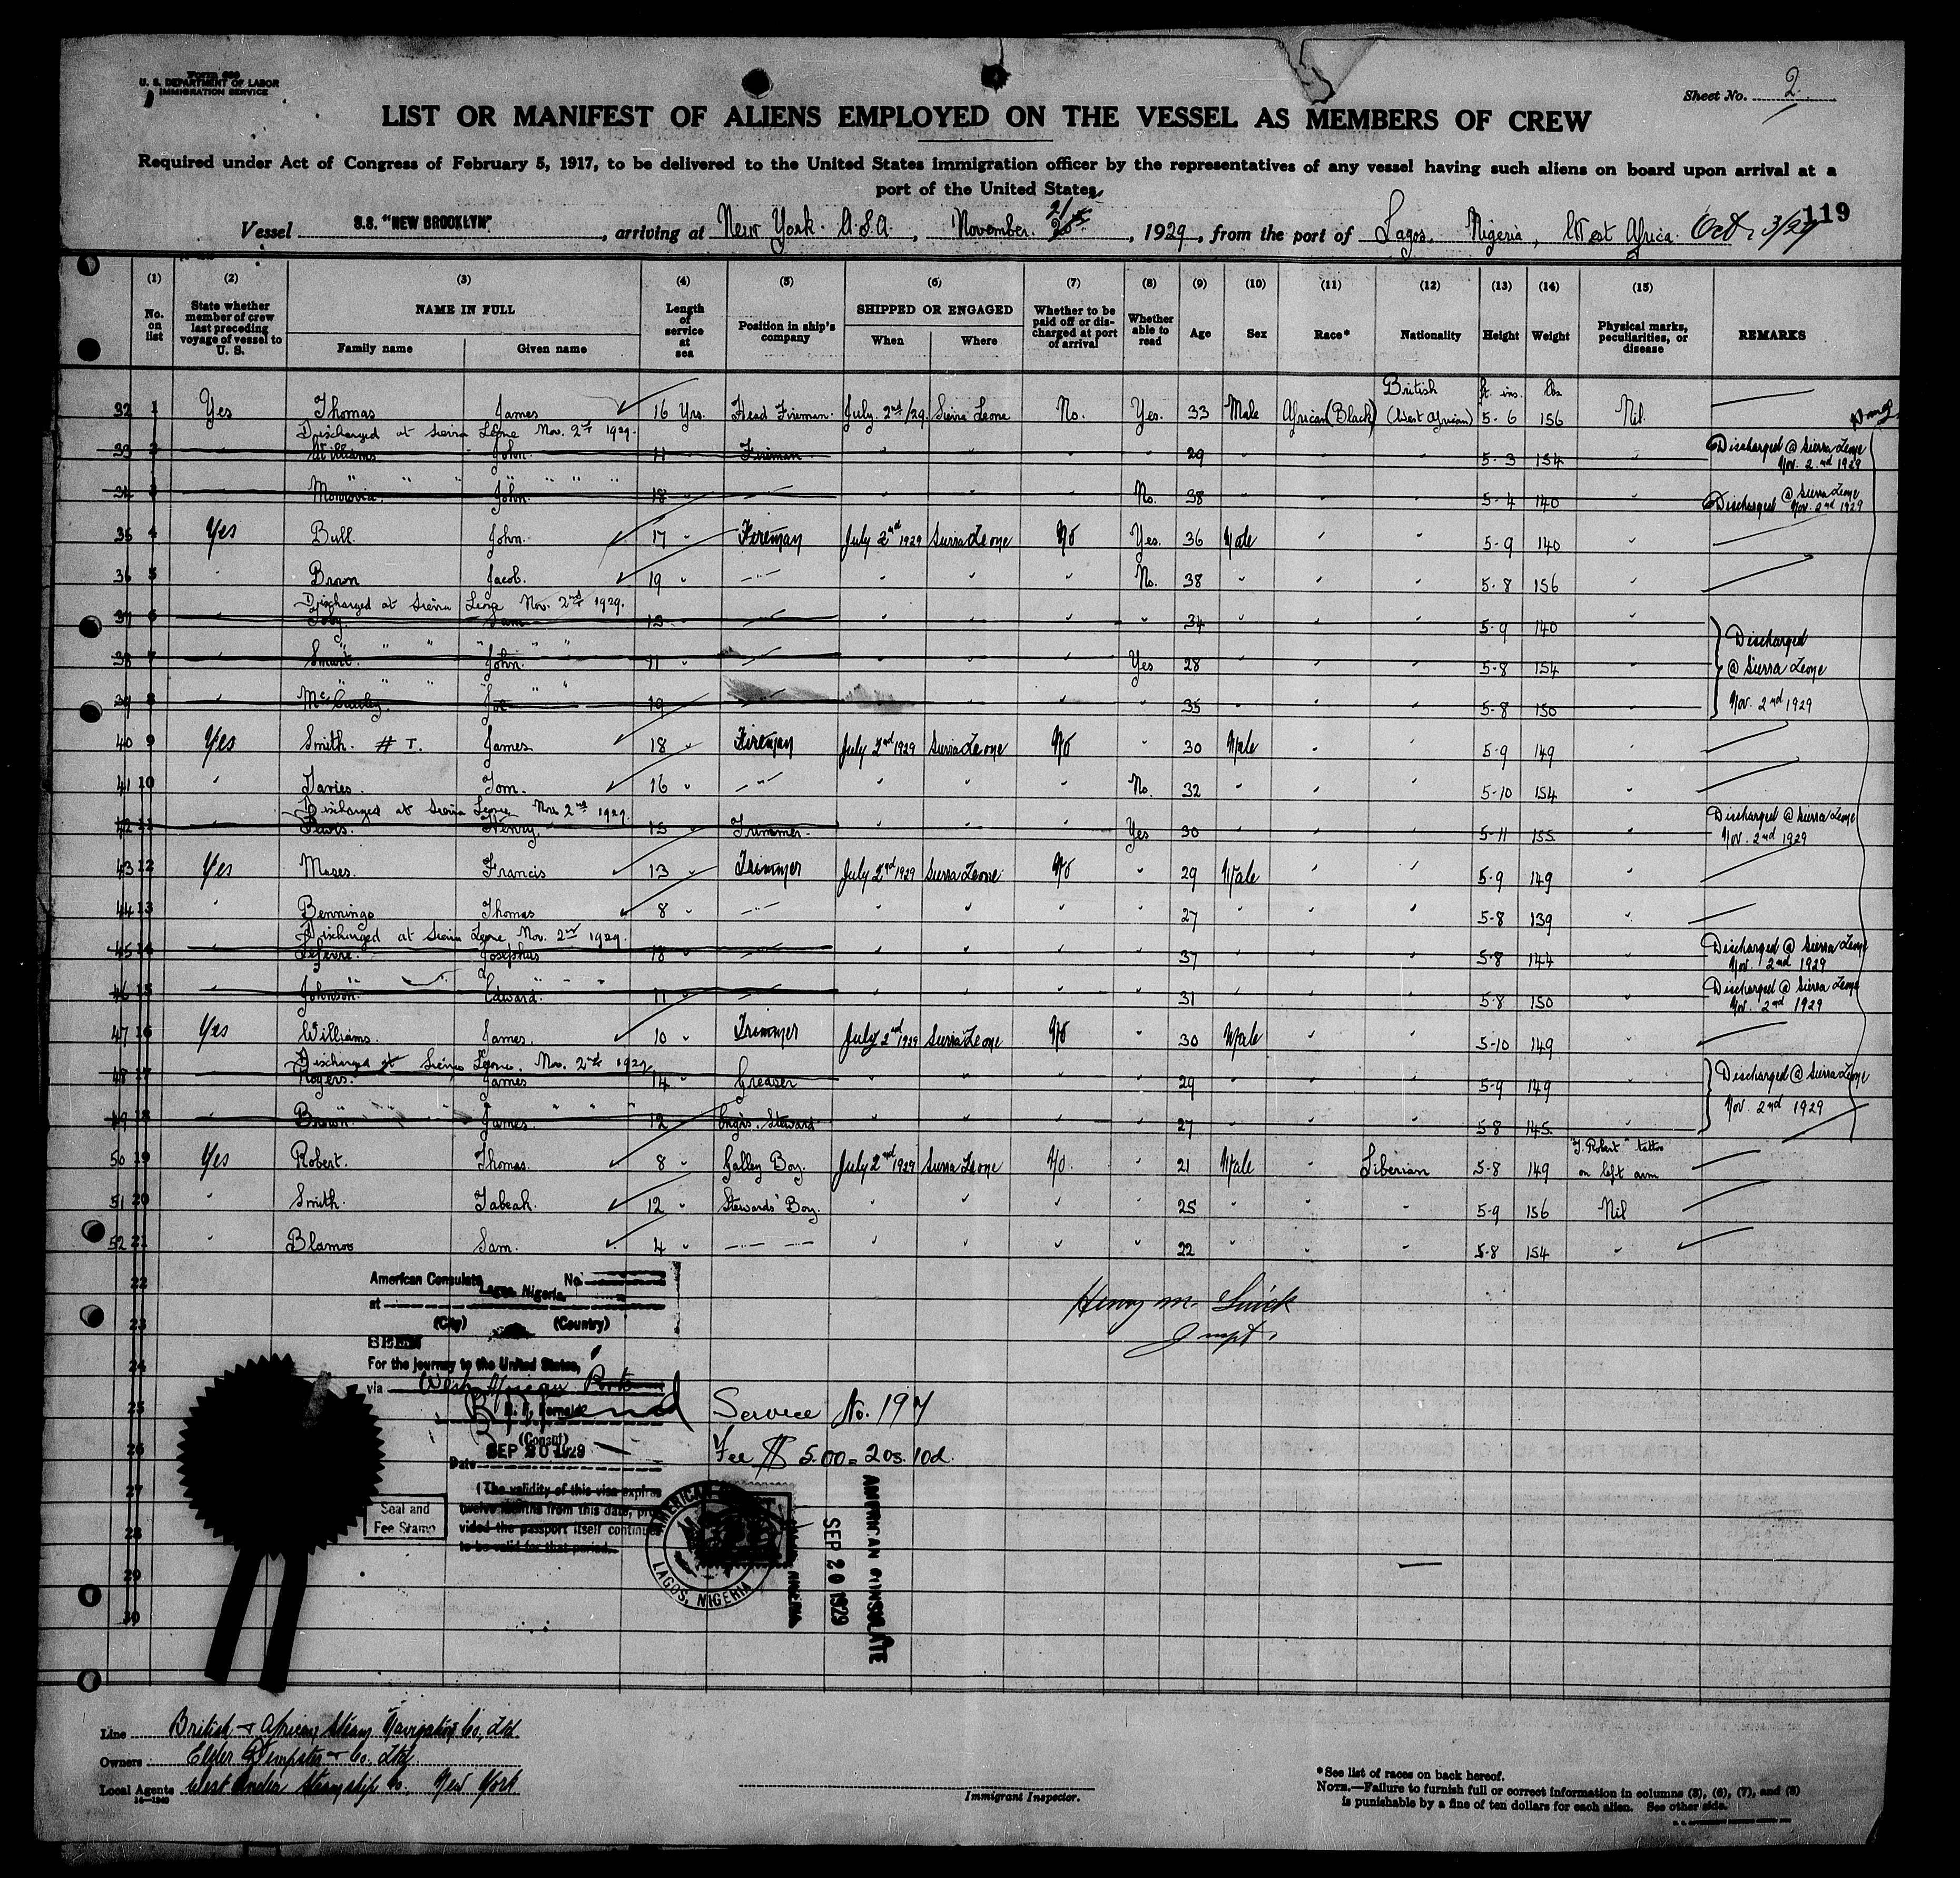 Form 689
U. S. DEPARTMENT OF LABOR
IMMIGRATION SERVICE
Sheet No. 2
LIST OR MANIFEST OF ALIENS EMPLOYED ON THE VESSEL AS MEMBERS OF CREW
Required under Act of Congress of February 5, 1917, to be delivered to the United States immigration officer by the representatives of any vessel having such aliens on board upon arrival at a
port of the United States
119
Vessel S.S. "NEW BROOKLYN", arriving at New York. U.S.A., November. 21st, 1929, from the port of Lagos, Nigeria, West Africa. Oct. 3/29
(1) (2) (3) (4) (5) (6) (7) (8) (9) (10) (11) (12) (13) (14) (15)
No. on list State whether member of crew last preceding voyage of vessel to U. S. NAME IN FULL Family name Given name Length of service at sea Position in ship's company SHIPPED OR ENGAGED When Where Whether to be paid off or discharged at port of arrival Whether able to read Age Sex Race* Nationality Height Weight Physical marks, peculiarities, or disease REMARKS
British ft ins. lbs
32 1 Yes Thomas James 16 Yrs. Head Fireman. July. 2nd/29. Sierra Leone No. Yes. 33 Male African (Black) (West African) 5-6 156 Nil.
Discharged at Sierra Leone Nov. 2nd 1929.
33 2 " Williams John. 11 " Fireman " " " " 29 " " " 5-3 154 " Discharged @ Sierra Leone
Nov. 2nd 1929
34 3 " Monrovia John. 18 " " " " " No. 38 " " " 5-4 140 " Discharged @ Sierra Leone
Nov. 2nd 1929
35 4 Yes Bull. John. 17 " Fireman July 2nd 1929 Sierra Leone No Yes. 36 Male " " 5-9 140 "
36 5 " Brown Jacob. 19 " " " " " No. 38 " " " 5-8 156 "
Discharged at Sierra Leone Nov. 2nd 1929.
37 6 " Toby. Sam 13 " " " " " " 34 " " " 5-9 140 " Discharged
38 7 " Smart. John. 11 " " " " " Yes 28 " " " 5-8 154 " @ Sierra Leone
39 8 " Joe 19 " " " " " " 35 " " " 5-8 150 " Nov. 2nd 1929
40 9 Yes Smith. # I. James 18 " Fireman July 2nd 1929 Sierra Leone No " 30 Male " " 5-9 149 "
41 10 " Davies. Tom. 16 " " " " " No. 32 " " " 5-10 154 "
Discharged at Sierra Leone Nov. 2nd 1929.
42 11 " Lewis. Henry. 15 " Trimmer. " " " Yes 30 " " " 5-11 155 " Discharged @ Sierra Leone
Nov. 2nd 1929
43 12 Yes Moses. Francis 13 " Trimmer July 2nd 1929 Sierra Leone No " 29 Male " " 5-9 149 "
44 13 " Bennings Thomas 8 " " " " " " 27 " " " 5-8 139 "
Discharged at Sierra Leone Nov. 2nd 1929.
45 14 " Lefevre. Josephus 18 " " " " " " 37 " " " 5-8 144 " Discharged @ Sierra Leone
Nov. 2nd 1929
46 15 " Johnson. Edward. 11 " " " " " " 31 " " " 5-8 150 " Discharged @ Sierra Leone
Nov. 2nd 1929
47 16 Yes Williams. James. 10 " Trimmer July 2nd 1929 Sierra Leone No " 30 Male " " 5-10 149 "
Discharged at Sierra Leone. Nov. 2nd 1929.
48 17 " Rogers. James 14 " Greaser " " " " 29 " " " 5-9 149 " Discharged @ Sierra Leone
49 18 " Brown James. 12 " Engrs. Steward " " " " 27 " " " 5-8 145 " Nov. 2nd 1929
50 19 Yes Robert. Thomas. 8 " Galley Boy. July 2nd 1929 Sierra Leone No. " 21 Male " Liberian 5-8 149 "T. Robert" tattoo on left arm
51 20 " Smith. Tabeah. 12 " Stewards' Boy. " " " " 25 " " " 5-9 156 Nil
52 21 " Blamoo Sam. 4 " " " " " " 22 " " " 5-8 154 "
22
23
24
25
26
27
28
29
30
American Consulate No.
at Lagos, Nigeria
(City) (Country)
SEEN
For the journey to the United States,
via West African Ports
(Consul)
Date SEP 20 1929
(The validity of this visa expires
twelve months from this date, pro-
vided the passport itself continues
to be valid for that period.
Seal and
Fee Stamp
Service No. 197
Fee $ 5.00 = 20s. 10d.
AMERICAN
LAGOS, NIGERIA
SEP 20 1929
AMERICAN CONSULATE
Henry M.
Inspt.
Line British & African Steam Navigation Co., Ltd
Owners Elder Dempster & Co. Ltd
Local Agents West India Steamship Co. New York.
Immigrant Inspector.
*See list of races on back hereof.
NOTE.—Failure to furnish full or correct information in columns (3), (6), (7), and (8)
is punishable by a fine of ten dollars for each alien. See other side.